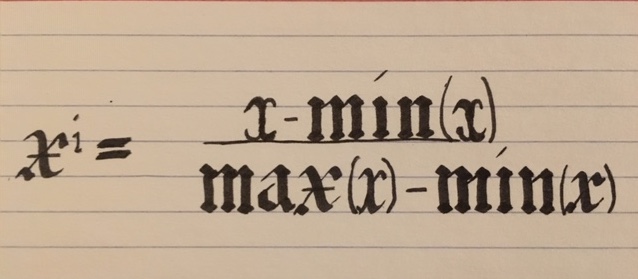 xⁱ = x - min(x)
max(x) - min(x)